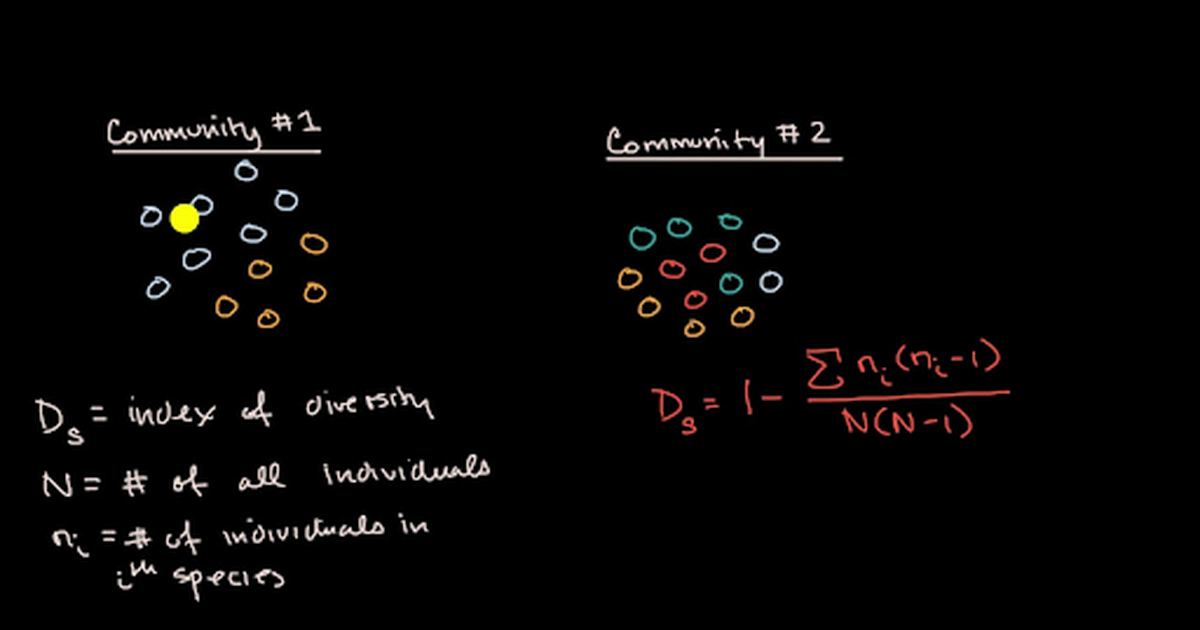 Community #1
Community #2
D_s = index of diversity
N = # of all individuals
n_i = # of individuals in
i^th species
D_s = 1 - Σ n_i(n_i-1) / N(N-1)